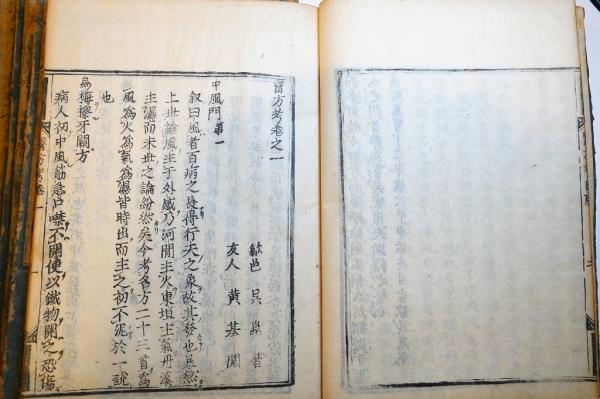 醫方考卷之一
歙邑 吳崑 著
友人 黃基 閱
中風門第一
叙曰風者百病之長得行天之象故其發也暴然
上世論風主于外感乃河間主火東垣主氣丹溪
主濕而末世之論紛然矣今考名方二十三首為
風為火為氣為濕皆時出而主之初不泥於一說
也
烏梅擦牙關方
病人初中風筋急口噤不開便以鐵物開之恐傷